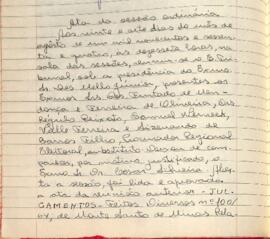 Ata da sessão ordinária
Aos vinte e sete dias do mês de
agosto de um mil novecentos e sessen-
ta e quatro, às dezessete horas, na
sala das sessões, reuniu-se o E. Tri-
bunal, sob a presidência do Exmo.
Des. Mello Júnior, presentes os
Exmos Srs. Des. Furtado de Men-
donça e Ferreira de Oliveira, Drs.
Régulo Peixoto, Samuel Werneck,
Vallo Ferreira e de
Barros Filho, Procurador Regional
Eleitoral, substituto. Deixou de com-
parecer, por motivo justificado, o
Exmo Sr. Dr. Cesar Silveira. Aber-
ta a sessão, foi lida e aprovada
a ata da reunião anterior. - JUL-
GAMENTOS - Feitos Diversos nº 100/
64, de Monte Santo de Minas. Rela-